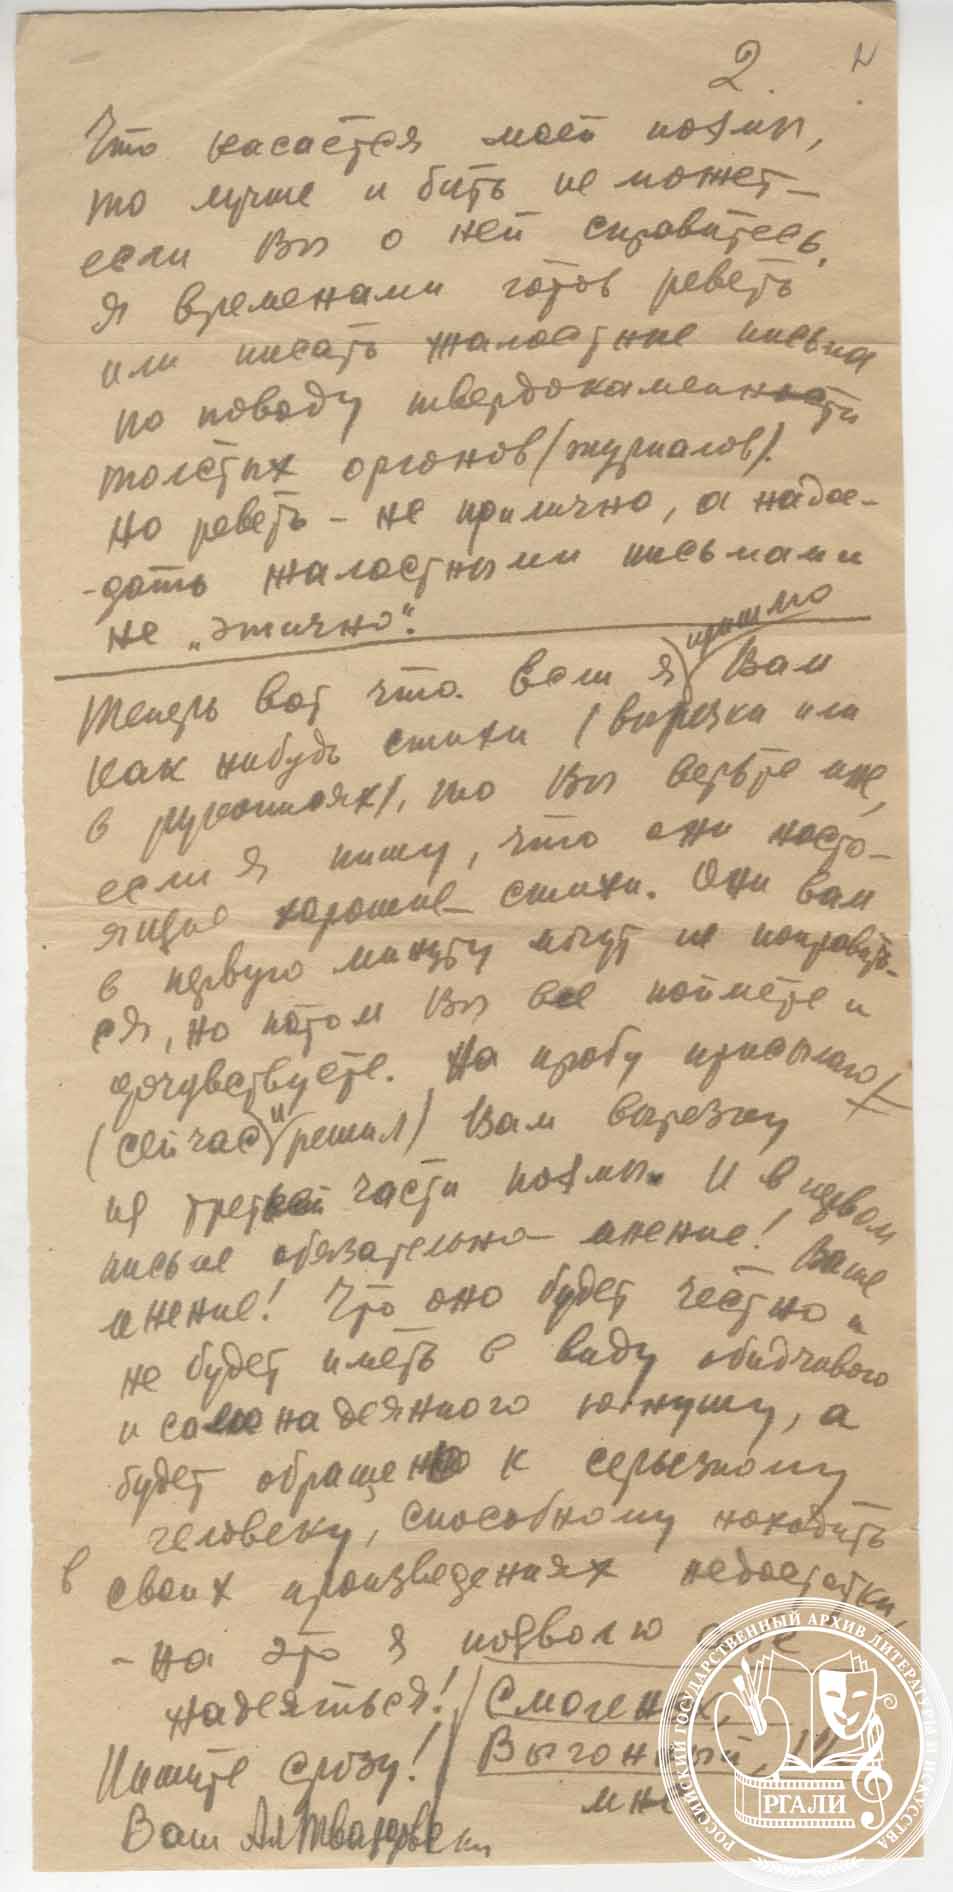 2.
Что касается моей поэмы,
то лучше и быть не может –
если Вы о ней справитесь.
Я временами готов реветь
или писать жалостные письма
по поводу твердокаменности
толстых органов (журналов).
Но реветь – не прилично, а надое-
-дать жалостными письмами
не „этично“.
Теперь вот что. Если я пришлю Вам
как нибудь стихи (вырезки или
в рукописях), то Вы верьте мне,
если я пишу, что они насто-
ящие хорошие стихи. Они вам
в первую минуту могут не понравить-
ся, но потом Вы все поймете и
прочувствуете. На пробу присылаю
(сейчас и решил) Вам вырезку
из третьей части поэмы. И в первом
письме обязательно – мнение! Ваше
мнение! Что оно будет честно и
не будет иметь в виду обидчивого
и самонадеянного юнушу, а
будет обращено к серьезному
человеку, способному находить
в своих произведениях недостатки,
– на это я позволю себе
надеяться! Смоленск,
Пишите сразу! Выгонный,
мне
Ваш Ал Твардовский
РОССИЙСКИЙ ГОСУДАРСТВЕННЫЙ АРХИВ ЛИТЕРАТУРЫ И ИСКУССТВА
РГАЛИ